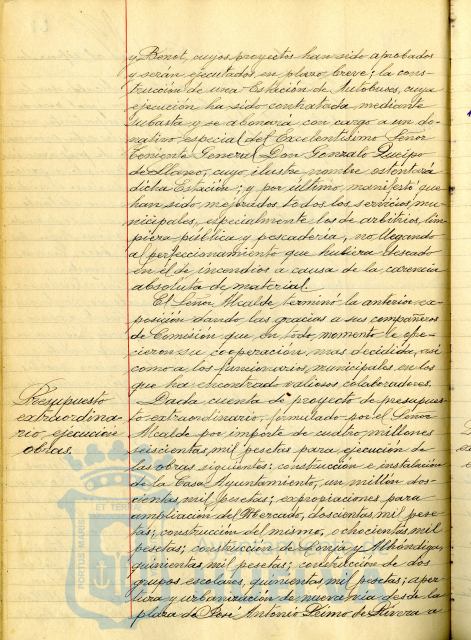 y Benot, cuyos proyectos han sido aprobados
y serán ejecutados en plazo breve; la cons-
trucción de una Estación de Autobuses, cuya
ejecución ha sido contratada mediante
subasta y se abonará con cargo a un do-
nativo especial del Excelentísimo Señor
Teniente General Don Gonzalo Queipo
de Llano, cuyo ilustre nombre ostentará
dicha Estación; y por último, manifestó que
han sido mejorados todos los servicios mu-
nicipales, especialmente los de arbitrios, lim-
pieza pública y pescadería, no llegando
al perfeccionamiento que hubiera deseado
en el de incendios a causa de la carencia
absoluta de material.
El Señor Alcalde terminó la anterior ex-
posición dando las gracias a sus compañeros
de Comisión que en todo momento le ofre-
cieron su cooperación mas decidida, así
como a los funcionarios municipales en los
que ha encontrado valiosos colaboradores.
Presupuesto
extraordina-
rio, ejecución
obras.
Dada cuenta de proyecto de presupues-
to extraordinario, formulado por el Señor
Alcalde por importe de cuatro millones
seiscientas mil pesetas para ejecución de
las obras siguientes: construcción e instalación
de la Casa Ayuntamiento, un millón dos-
cientas mil pesetas; expropiaciones para
ampliación del Mercado, doscientas mil pese-
tas; construcción del mismo, ochocientas mil
pesetas; construcción de Lonja y Alhóndiga,
quinientas mil pesetas; construcción de dos
grupos escolares, quinientas mil pesetas; aper-
tura y urbanización de nueva vía desde la
plaza de José Antonio Primo de Rivera a
ET TERRA
TORRIS MARIS